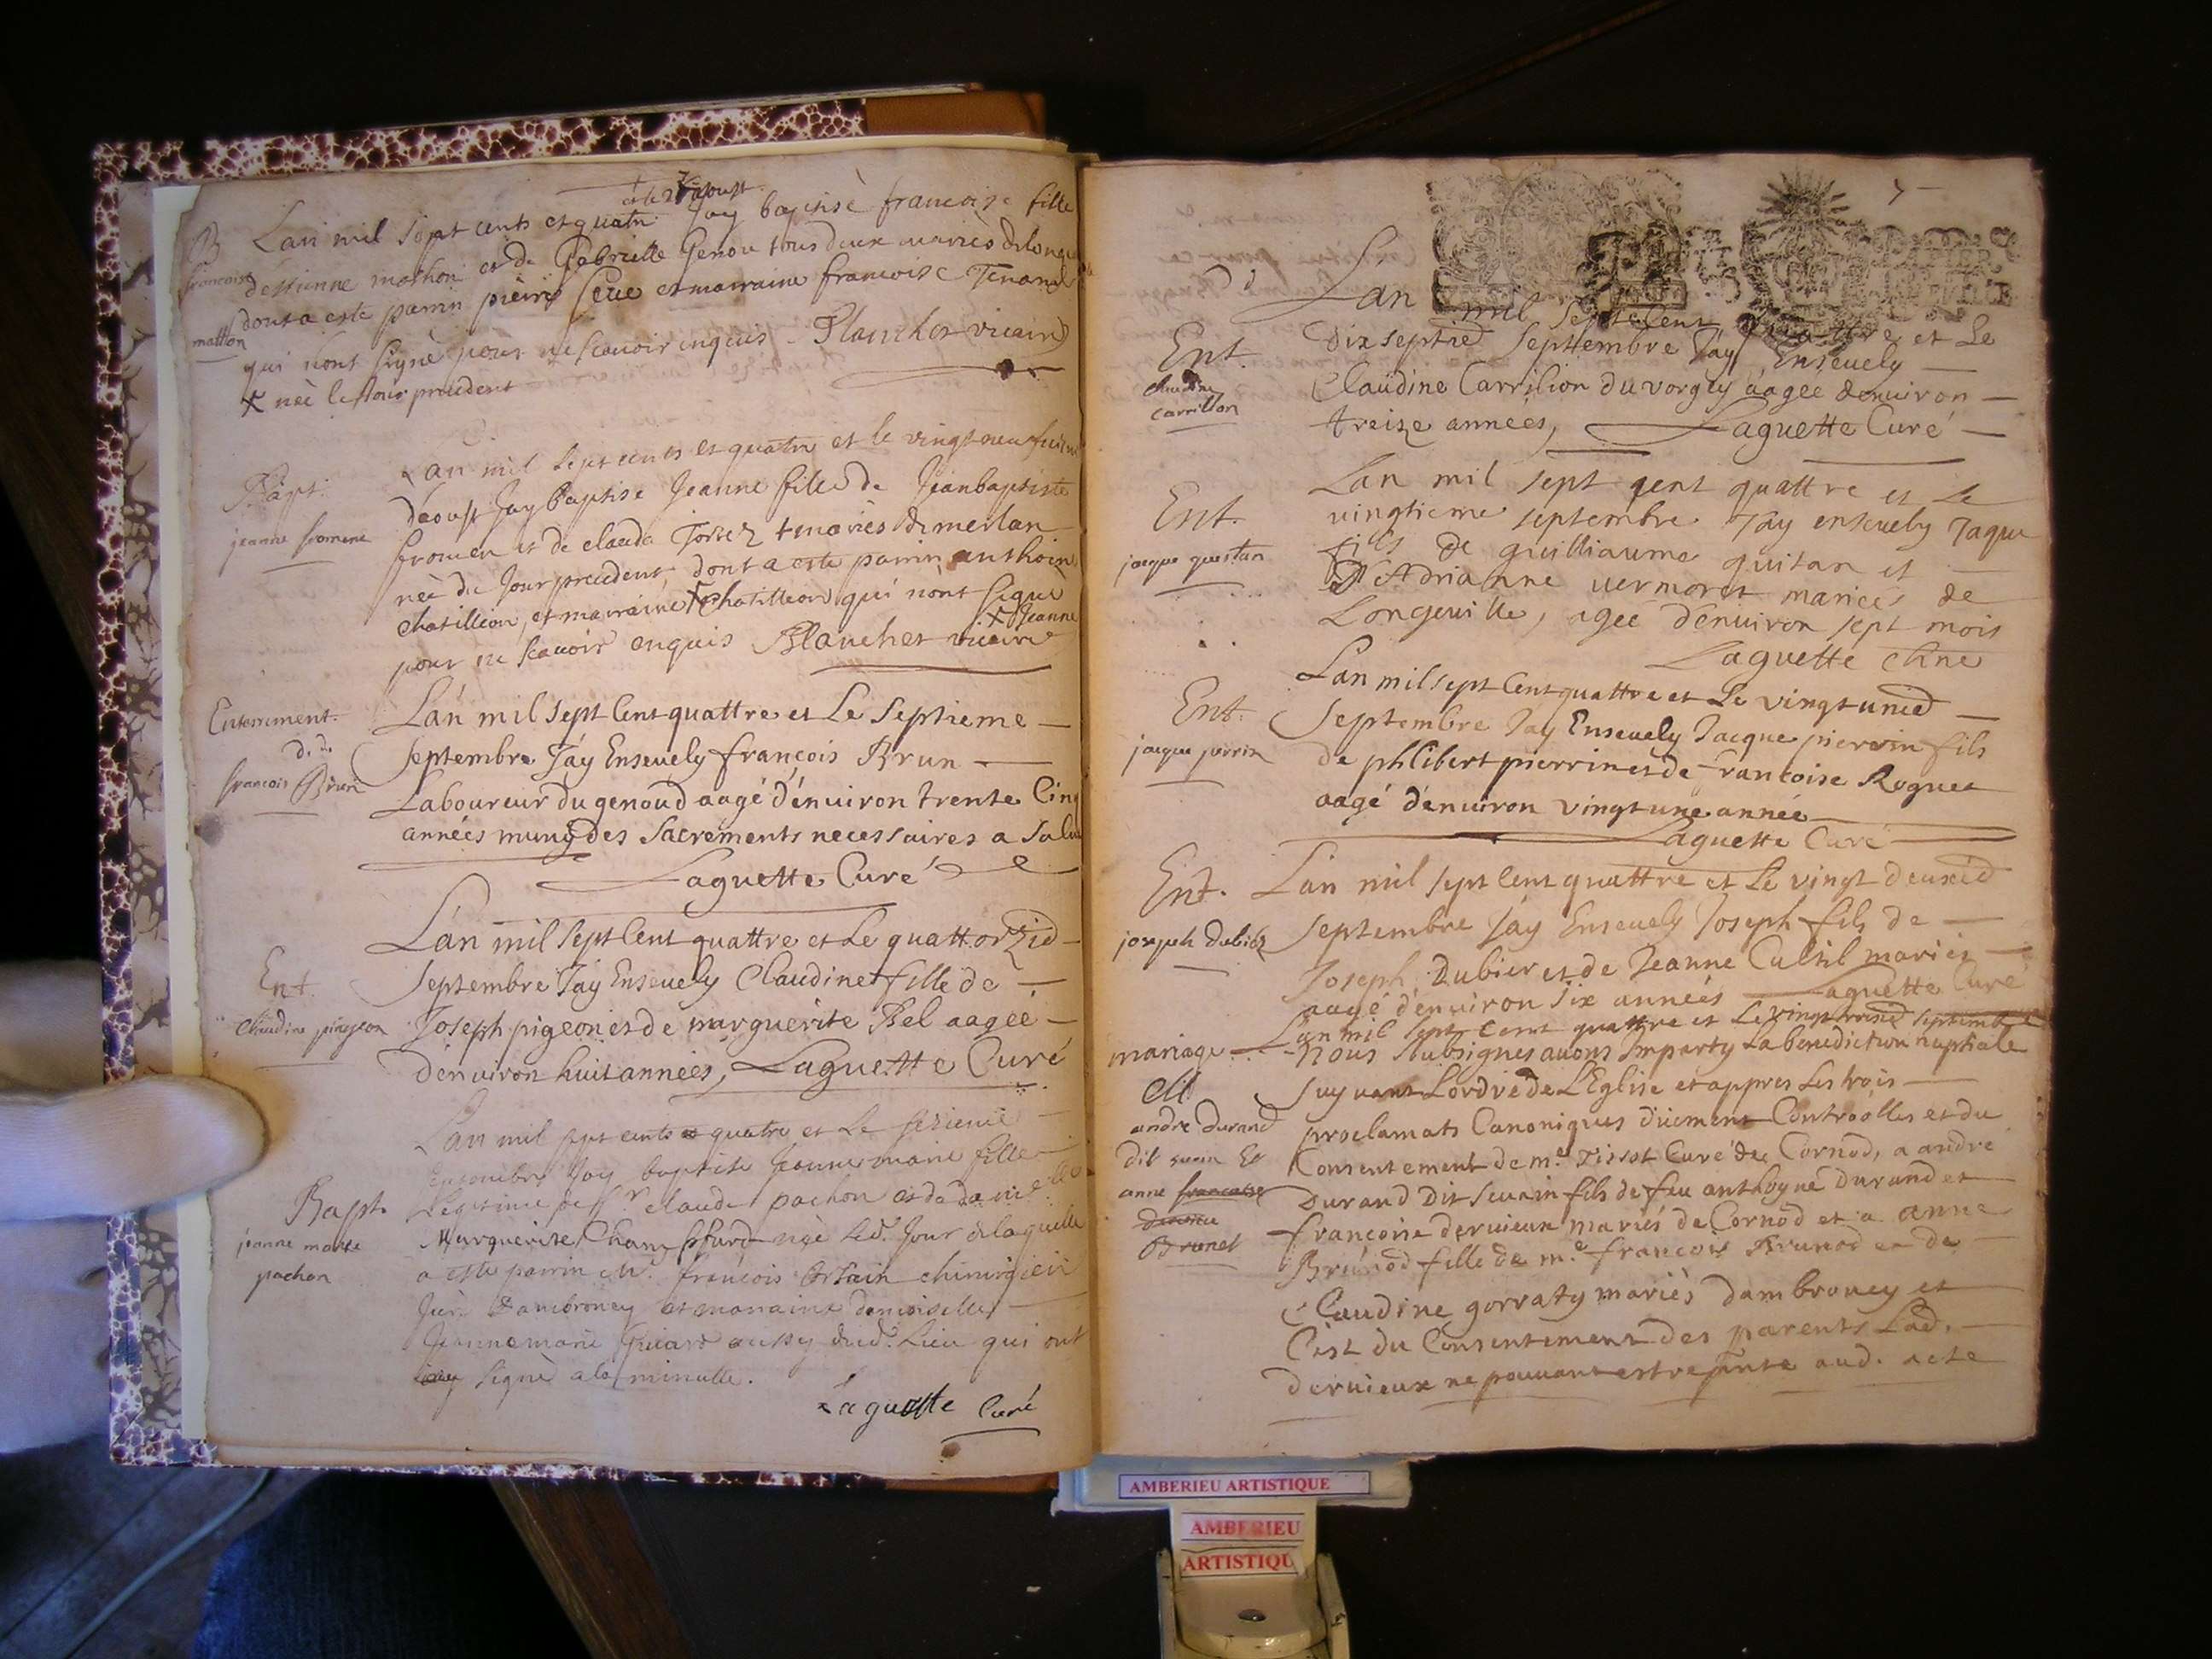 et le 27 aoust
B Lan mil sept cents et quatre Jay baptisé francoise fille
francoise
d'estienne mathon et de Gebrielle Genou tous deux mariès de longe
dont a esté parrin pierre et marraine francoise Tenand
mathon
qui nont signè pour ne scavoir enquis Planchet vicaire
+ née le Jour precedent
Bapt. Lan mil sept cents et quatre et le vingt neufuieme
d'aoust Jay baptisé Jeanne fille de Jeanbaptiste
jeanne fromene
fromen et de claude mariès de merlan
née du Jour precedent, dont a esté parrin anthoine
chatillion, et marraine + chatillion qui nont signe
+ Jeanne
pour ne scavoir enquis Planchet vicaire
Enterrement. Lan mil sept Cent quattre et Le Septieme
d. d.
Septembre Jáy Enseuely françois Brun
francois Brun
Laboureur du genoud aagé d'énuiron trente Cinq
années muny des Sacrements necessaires a Salu
Laguette Curé
Lan mil Sept Cent quattre et Le quattorzie
Ent. Septembre Jáy Enseuely Claudine fille de
Claudine pingeon Joseph pigeon et de marguerite Bel aagée
d'énuiron huit années, Laguette Curé
Lan mil sept cents et quatre et Le sezieme
septembre Jay baptisé Jeanne marie fille
Bapt. Legitime de Sr. claude pachon et de
jeanne marie
Marguerite née led. Jour de laquelle
pachon
a esté parrin Mr. francois chirurgien
Juré Dambroney et marraine demoiselle
Jeanne marie aussy dud. Lieu qui ont
signé a la minutte.
Laguette Curé
Lan mil Sept Cent quattre et Le
Ent. Dix septie Septtembre Jay Enseuely
claudine
carrillon
Claudine Carrilion du vorgey aagee denuiron
treize années, Laguette Curé
Lan mil sept cent quattre et Le
Ent. vingtieme septembre Jay enseuely Jaque
jacque guestan
fils de guilliaume guitan et
d'Adrianne uermoret mariees de
Longeuille, agée d'énuiron sept mois
Laguette Cure
Lan mil sept Cent quattre et Le vingt unie
Ent. Septembre Jay Enseuely Jacque pierrin fils
jacque perrin
de philibert pierrin et de francoise Roguet
aagé d'énuiron vingt une année
Laguette Curé
Ent. Lan mil sept Cent quattre et Le vingt deuxie
Septembre Jáy Enseuely Joseph fils de
joseph dubier
Joseph Dubier et de Jeanne mariés
aagé d'énuiron six années Laguette Curé
Lan mil sept cent quattre et Le vingt troisie septembre
mariage Nous Subsignes auons Imparty La benediction nuptiale
suyuant Lordre de L'Eglise et appres Les trois
andre durand
proclamats Canoniques duement Controolles et du
dit seurin Et
Consentement de me. Tissot Curé de Cornod, a andré
anne francoise
Durand Dit Seurin fils de feu anthoyne Durand et
francoise deruieux mariés de Cornod et a anne
Brunet
Brunod fille de me. francois Brunod et de
Claudine gorraty mariés dambroney et
C'est du Consentement des parents Lad.
deruieux ne pouuant estre pnte aud. acte
AMBERIEU ARTISTIQUE
AMBERIEU
ARTISTIQU